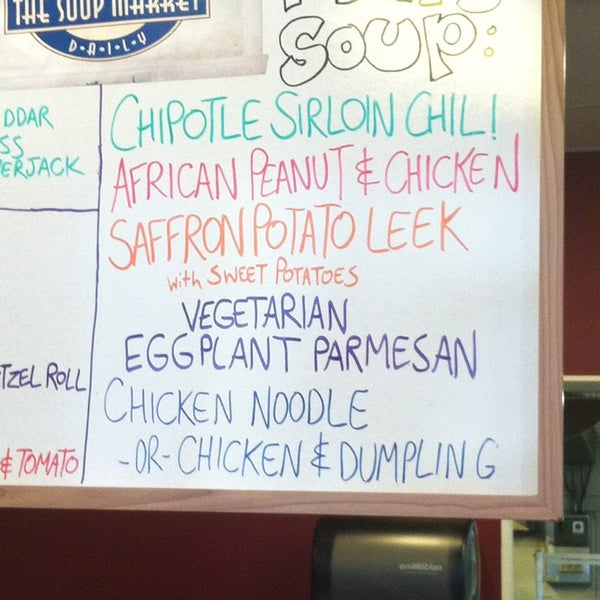 THE SOUP MARKET
DAILY
SOUP:
DDAR
SS
PERJACK
CHIPOTLE SIRLOIN CHILI
AFRICAN PEANUT & CHICKEN
SAFFRON POTATO LEEK
with SWEET POTATOES
VEGETARIAN
EGGPLANT PARMESAN
TZEL ROLL
CHICKEN NOODLE
-OR- CHICKEN & DUMPLING
& TOMATO
enMotion